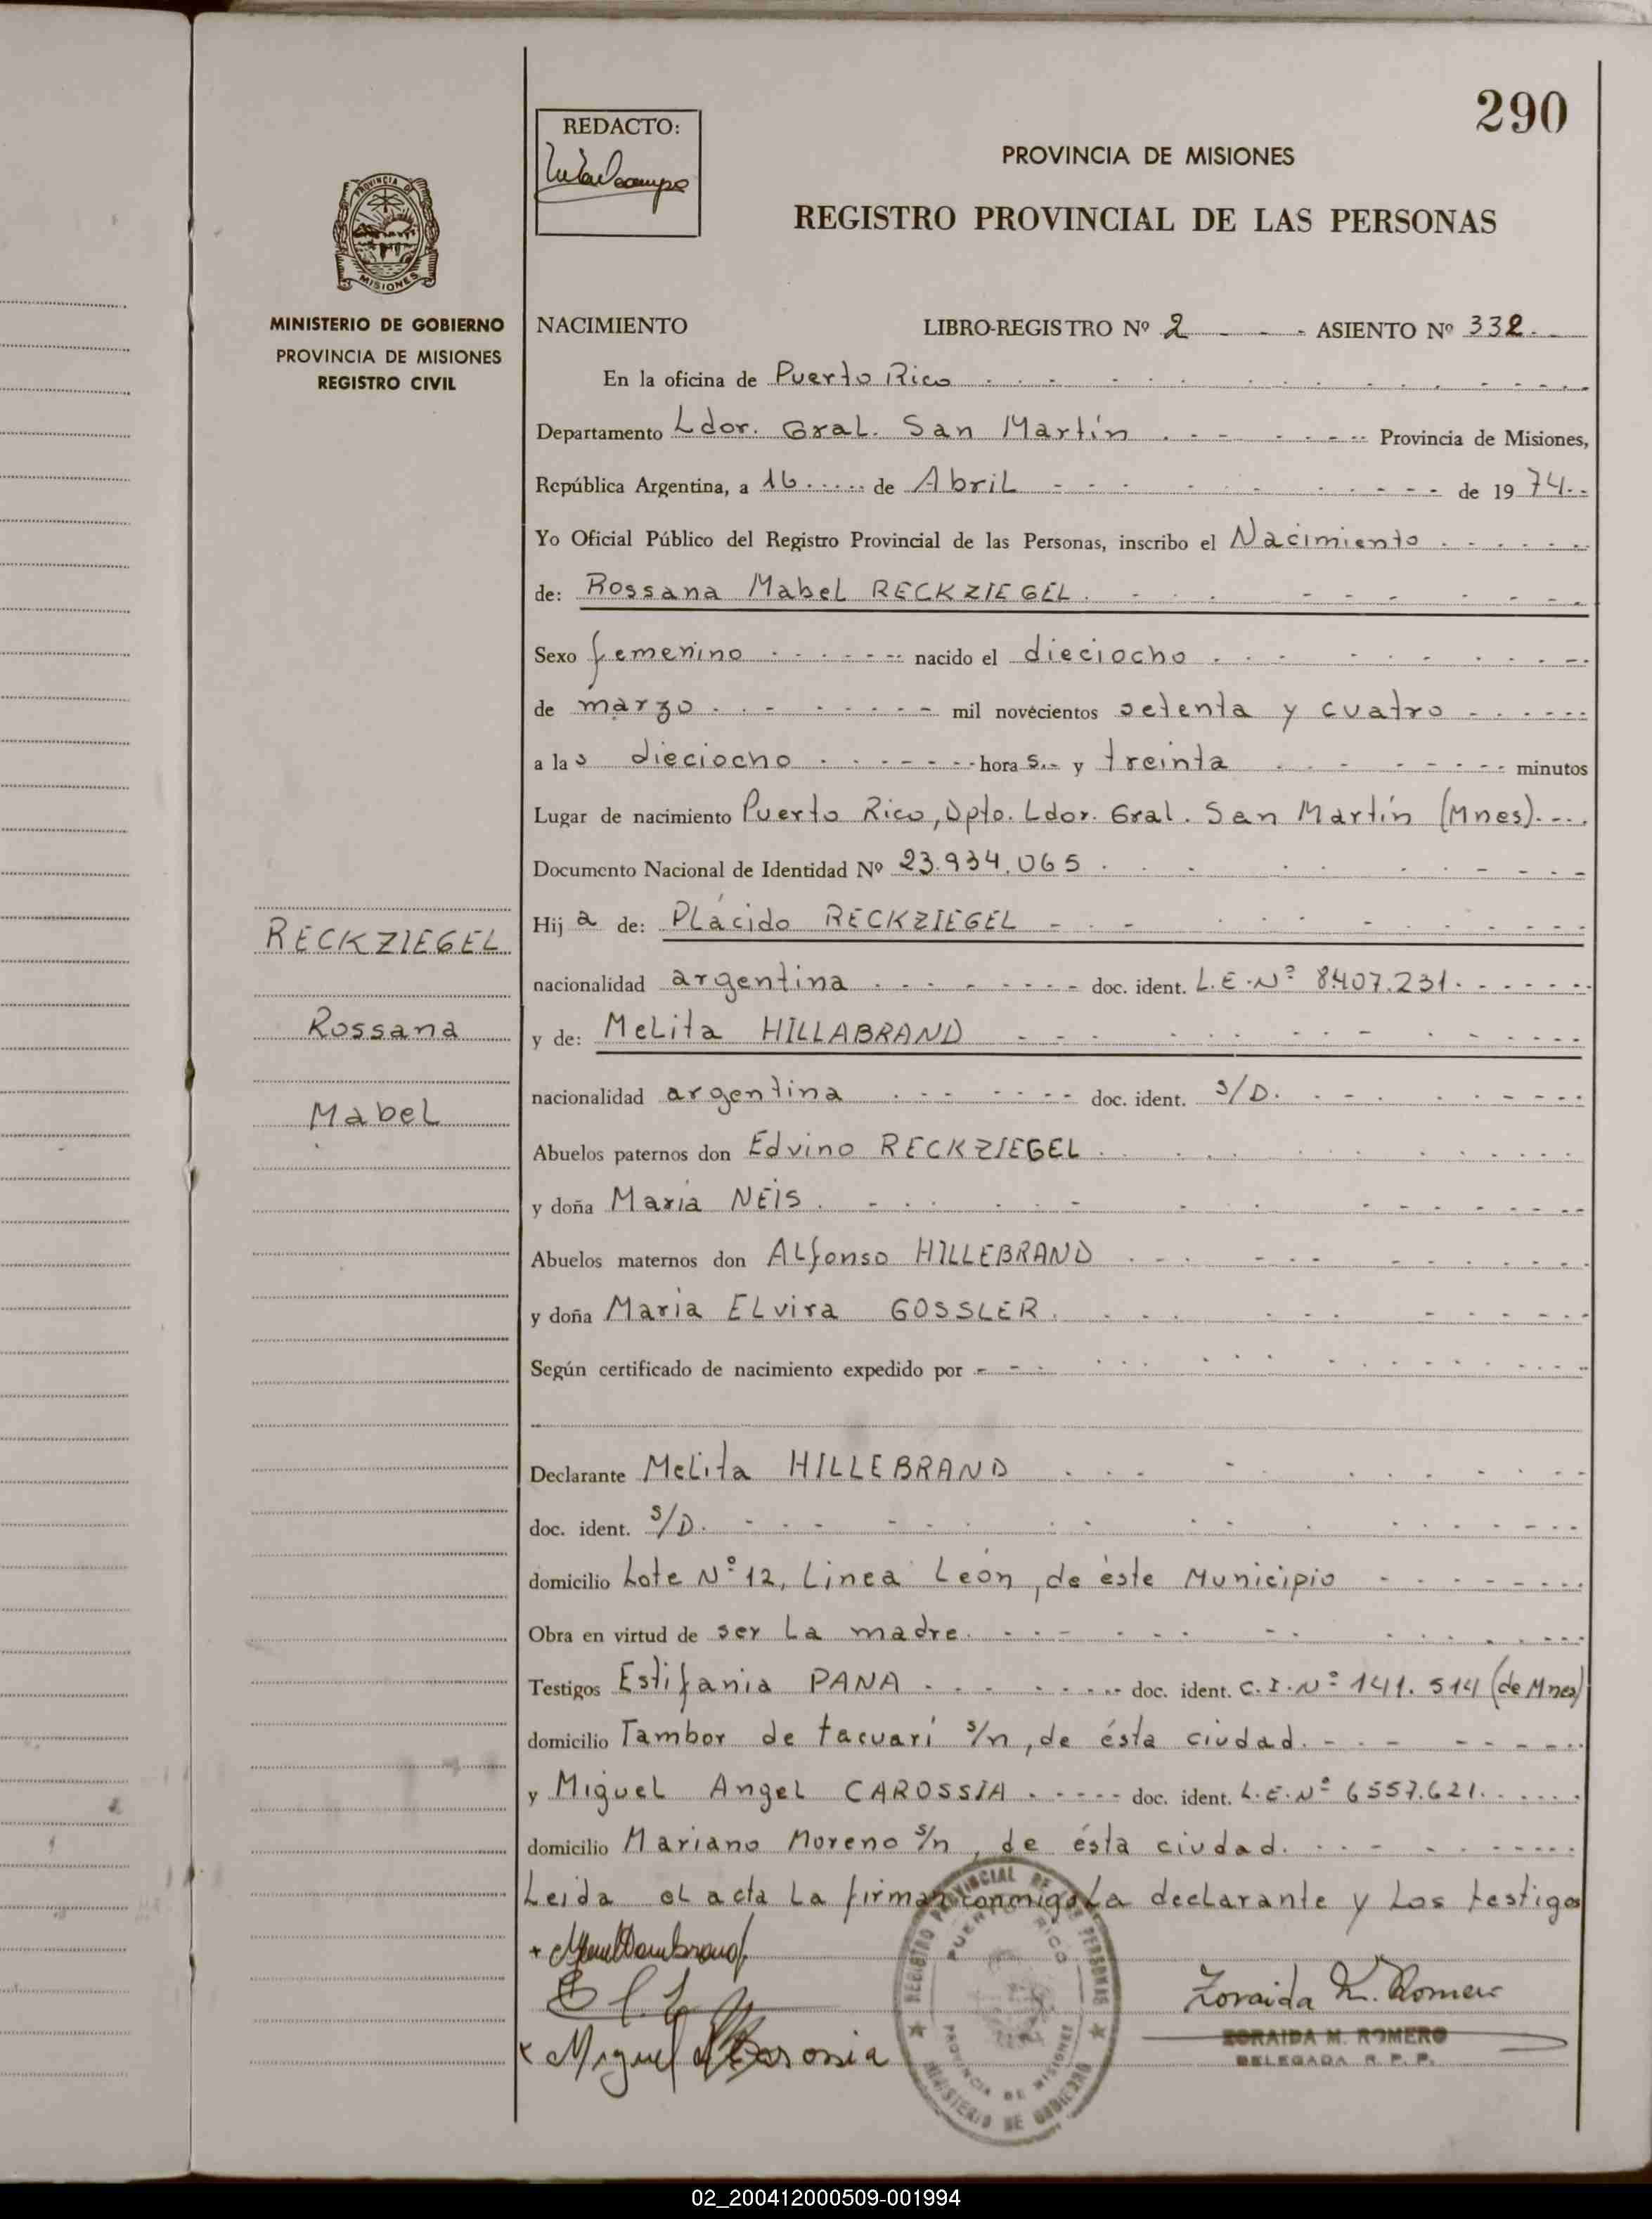 290
REDACTO:
PROVINCIA DE MISIONES
REGISTRO PROVINCIAL DE LAS PERSONAS
PROVINCIA DE
MISIONES
MINISTERIO DE GOBIERNO
PROVINCIA DE MISIONES
REGISTRO CIVIL
NACIMIENTO LIBRO-REGISTRO Nº 2 ASIENTO Nº 332.
En la oficina de Puerto Rico
Departamento Ldor. Gral. San Martín Provincia de Misiones,
República Argentina, a 16 de Abril de 1974
Yo Oficial Público del Registro Provincial de las Personas, inscribo el Nacimiento
de: Rossana Mabel RECKZIEGEL.
Sexo femenino nacido el dieciocho
de marzo mil novecientos setenta y cuatro
a las dieciocho horas y treinta minutos
Lugar de nacimiento Puerto Rico, Dpto. Ldor. Gral. San Martín (Mnes).
Documento Nacional de Identidad Nº 23.934.065
Hija de: Plácido RECKZIEGEL
nacionalidad argentina doc. ident. L.E.Nº 8407.231.
y de: Melita HILLABRAND
nacionalidad argentina doc. ident. S/D.
Abuelos paternos don Edvino RECKZIEGEL.
y doña María NEIS.
Abuelos maternos don Alfonso HILLEBRAND
y doña María Elvira GOSSLER.
Según certificado de nacimiento expedido por
Declarante Melita HILLEBRAND
doc. ident. S/D.
domicilio Lote Nº 12, Linea León, de éste Municipio
Obra en virtud de ser la madre.
Testigos Estifania PANA doc. ident. C.I.Nº 141.514 (de Mnes)
domicilio Tambor de tacuarí s/n, de ésta ciudad.
y Miguel Angel CAROSSIA doc. ident. L.E.Nº 6557.621.
domicilio Mariano Moreno s/n, de ésta ciudad.
Leida el acta la firman conmigo La declarante y Los testigos
RECKZIEGEL
Rossana
Mabel
Miguel
Zoraida M. Romero
ZORAIDA M. ROMERO
DELEGADA R. P. P.
REGISTRO PROVINCIAL DE LAS PERSONAS
PUERTO RICO
PROVINCIA DE MISIONES
MINISTERIO DE GOBIERNO
02_200412000509-001994